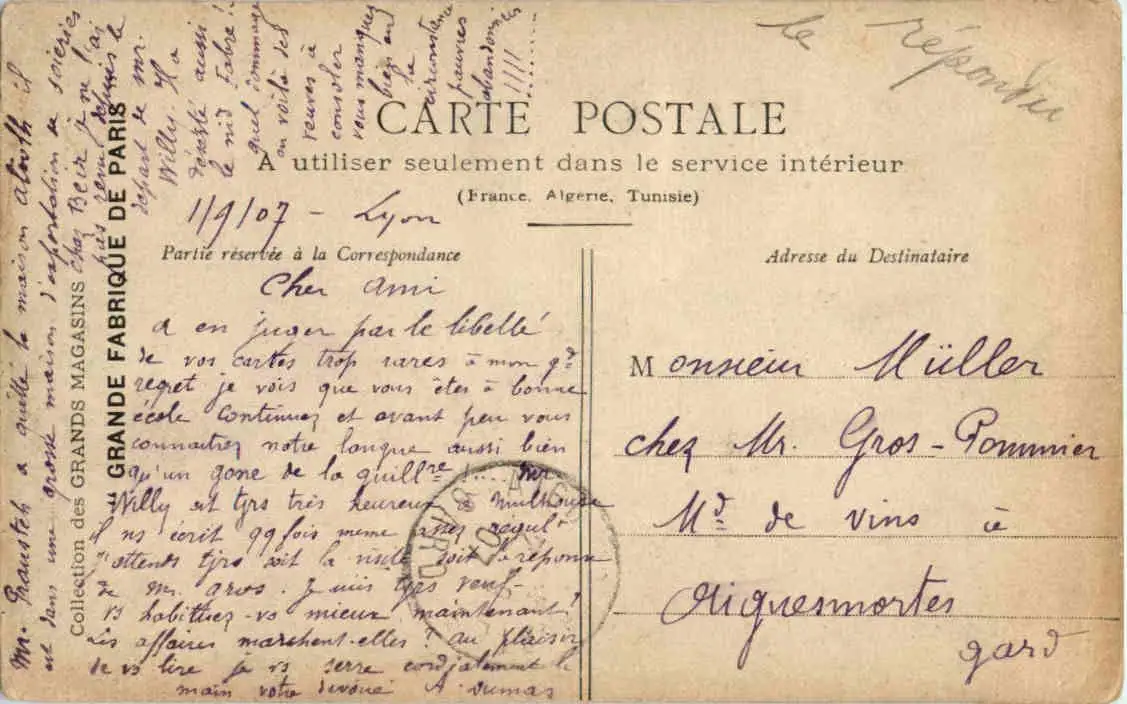 le répondu
CARTE POSTALE
A utiliser seulement dans le service intérieur
(France, Algérie, Tunisie)
1/9/07 - Lyon
Partie réservée à la Correspondance
Cher Ami
A en juger par le libellé
de vos cartes trop rares à mon gd
regret je vois que vous êtes à bonne
école continuez et avant peu vous
connaitrez notre langue aussi bien
qu'un gone de la guillre !.... Mr
Willy est tjrs très heureux à Mulhouse
il ns écrit qq fois meme assez regult
j'attends tjrs soit la visite soit la réponse
de Mr. Je suis tjrs veuf -
vs habituez-vs mieux maintenant?
Les affaires marchent-elles? au plaisir
de vs lire je vs serre cordialement la
main votre dévoué A. Dumas
Adresse du Destinataire
Monsieur Müller
chez Mr. Gros-Pommier
Md de vins à
Aiguesmortes
gard
Mr. a quitté la maison il
est dans une grosse maison d'exportation de soieries
Collection des GRANDS MAGASINS
"GRANDE FABRIQUE DE PARIS
chez Beir je ne l'ai
pas revu depuis le
départ de Mr.
Willy. Il a
déserté aussi
le nid Fabre!
quel dommage
on voilà des
veuves à
consoler
vous manquez
bien en
la
circonstance
pauvres
abandonnées
!!!!......